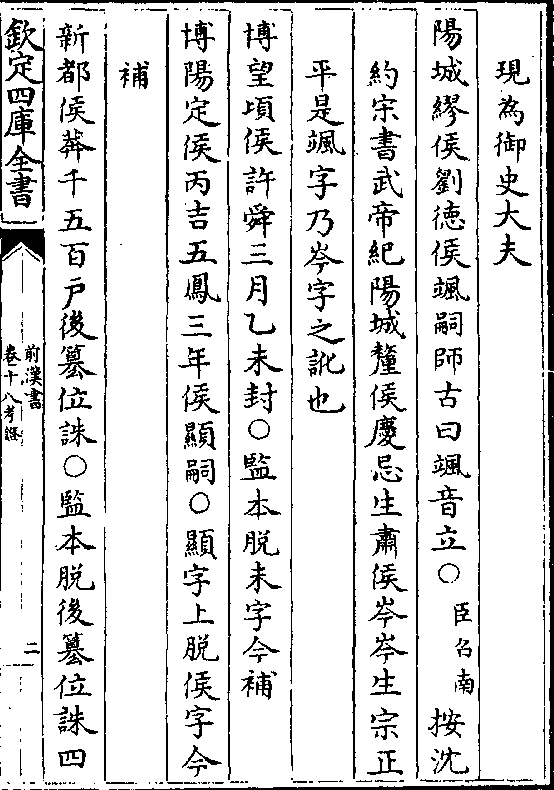 現為御史大夫
陽城繆侯劉徳侯颯嗣師古曰颯音立○臣召南按沈
約宋書武帝紀陽城釐侯慶忌生肅侯岑岑生宗正
平是颯字乃岑字之訛也
博望頃侯許舜三月乙未封○監本脱未字今補
博陽定侯丙吉五鳳三年侯顯嗣○顯字上脱侯字今
補
新都侯莽千五百戸後簒位誅○監本脱後簒位誅四
欽定四庫全書
前漢書
卷十八考證
二